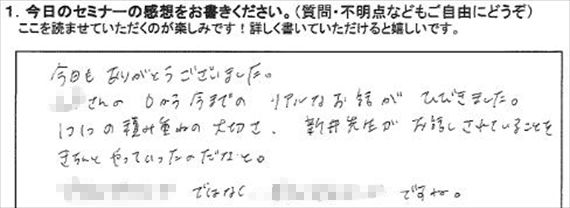 1. 今日のセミナーの感想をお書きください。(質問・不明点などもご自由にどうぞ)
ここを読ませていただくのが楽しみです!詳しく書いていただけると嬉しいです。
今日も ありがとうございました。
さんの 0から今までの リアルなお話が ひびきました。
1つ1つの積み重ねの大切さ、新井先生が お話しされていることを
きちんと やっていったのだなと。
ではなく ですね。